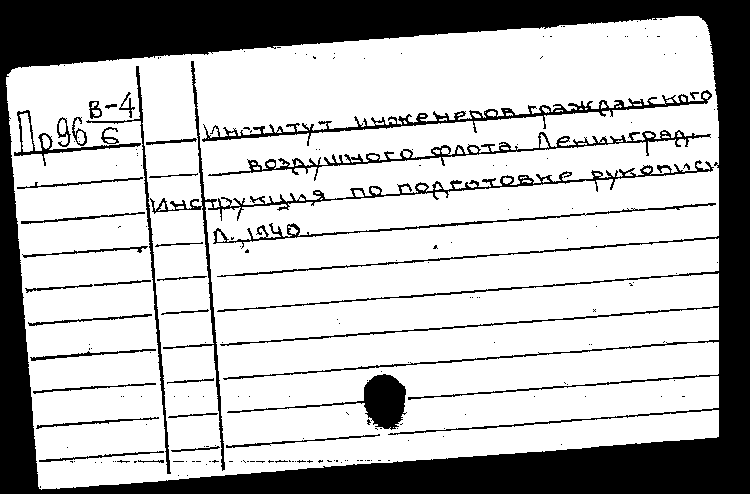 Пр96 В-4/6
Институт инженеров гражданского
воздушного флота. Ленинград.
Инструкция по подготовке рукописи
Л., 1940.